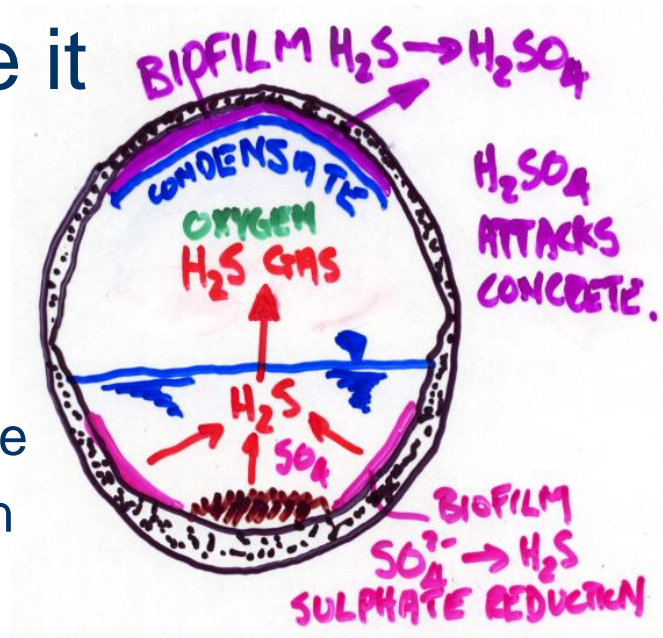 e it
BIOFILM H₂S → H₂SO₄
CONDENSATE
OXYGEN
H₂S GAS
H₂SO₄
ATTACKS
CONCRETE.
H₂S
e
SO₄
n
BIOFILM
SO₄²⁻ → H₂S
SULPHATE REDUCTION